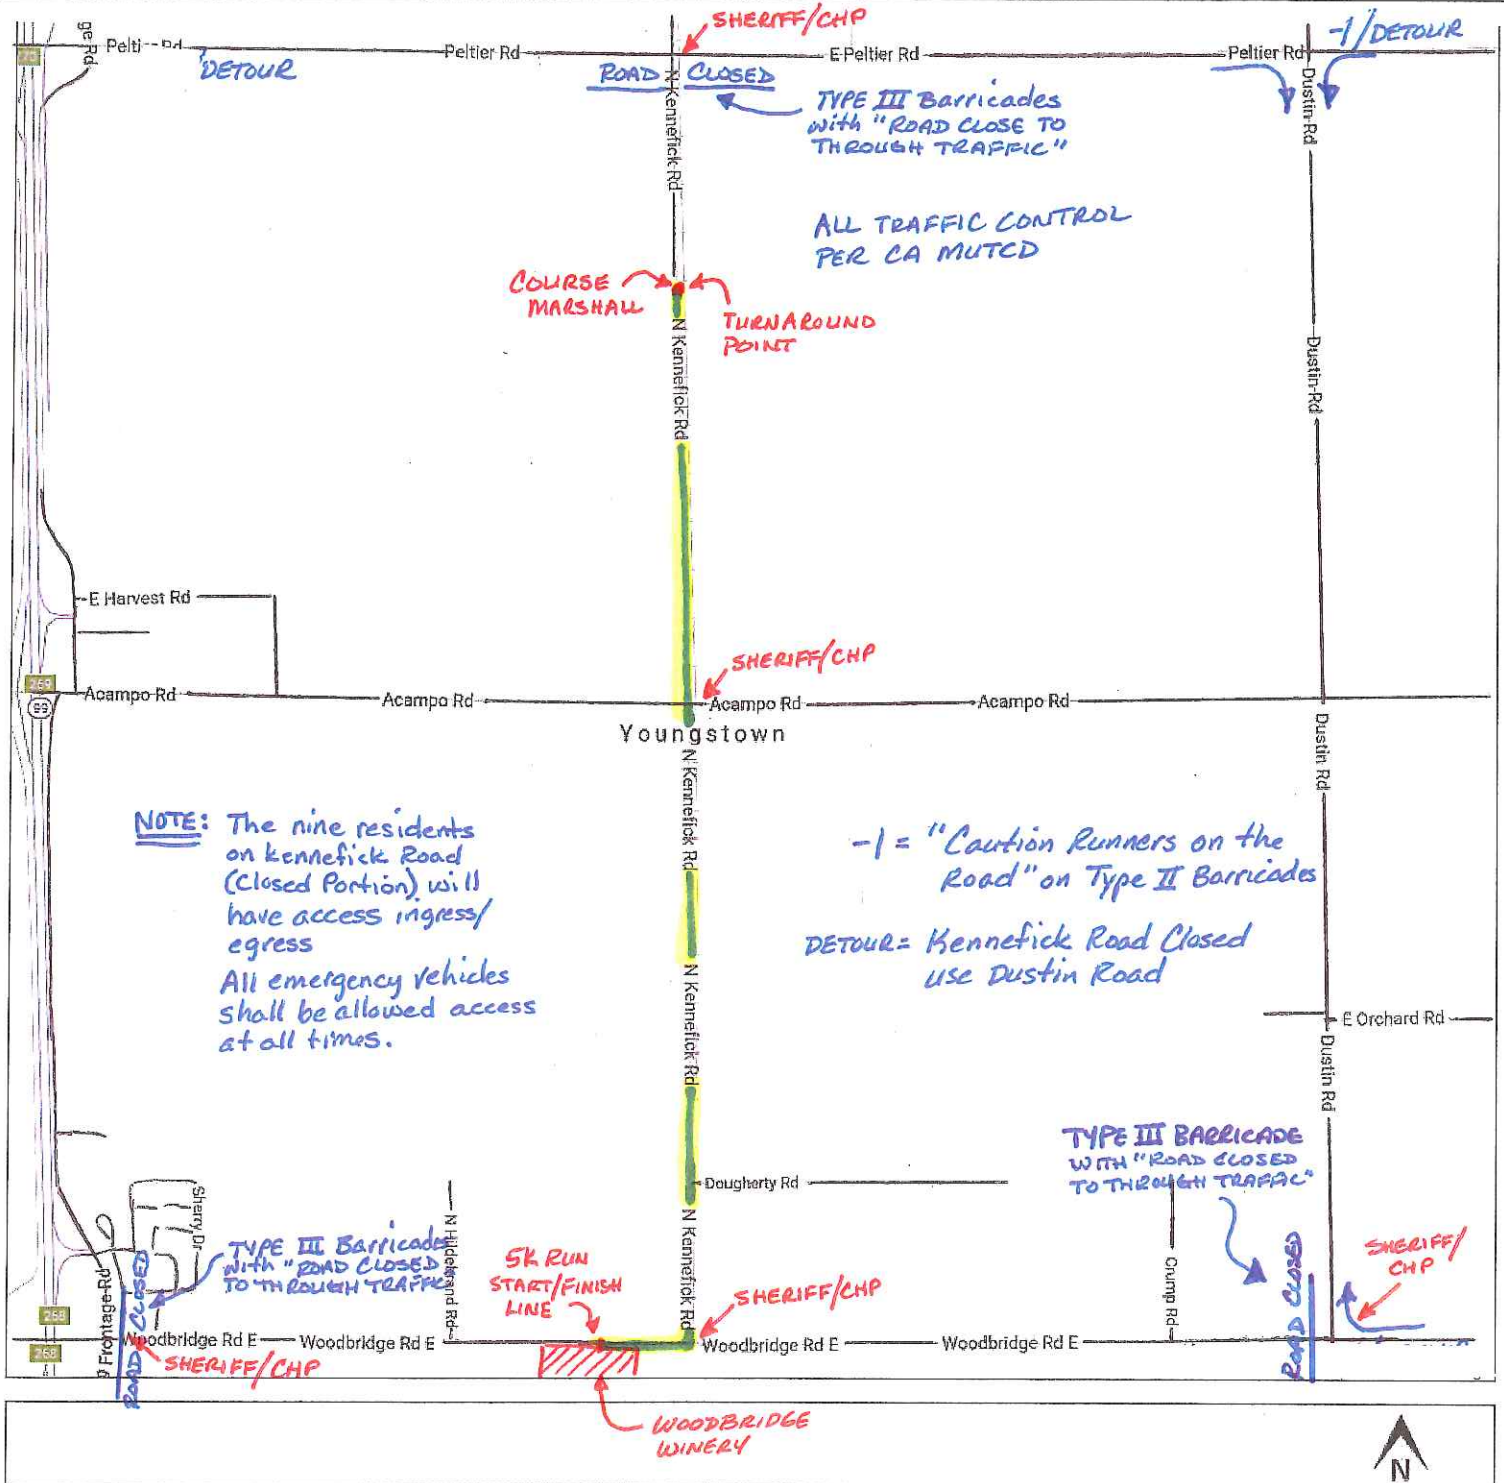 SHERIFF/CHP
-1/DETOUR
ge Rd
Pelti--Rd
Peltier Rd
E Peltier Rd
Peltier Rd
DETOUR
ROAD CLOSED
N Kennefick Rd
TYPE III Barricades
with "ROAD CLOSE TO
THROUGH TRAFFIC"
Dustin Rd
ALL TRAFFIC CONTROL
PER CA MUTCD
COURSE
MARSHALL
TURNAROUND
POINT
N Kennefick Rd
Dustin Rd
E Harvest Rd
SHERIFF/CHP
269
99
Acampo Rd
Acampo Rd
Acampo Rd
Acampo Rd
Youngstown
Dustin Rd
N Kennefick Rd
NOTE: The nine residents
on Kennefick Road
(Closed Portion) will
have access ingress/
egress
All emergency vehicles
shall be allowed access
at all times.
-1 = "Caution Runners on the
Road" on Type II Barricades
DETOUR = Kennefick Road Closed
use Dustin Road
N Kennefick Rd
E Orchard Rd
Dustin Rd
TYPE III BARRICADE
WITH "ROAD CLOSED
TO THROUGH TRAFFIC"
Dougherty Rd
Sherry Dr
N Hildebrand Rd
N Kennefick Rd
Crump Rd
TYPE III Barricades
with "ROAD CLOSED
TO THROUGH TRAFFIC
5K RUN
START/FINISH
LINE
SHERIFF/CHP
SHERIFF/
CHP
ROAD CLOSED
ROAD CLOSED
Frontage Rd
268
268
Woodbridge Rd E
Woodbridge Rd E
Woodbridge Rd E
Woodbridge Rd E
SHERIFF/CHP
WOODBRIDGE
WINERY
N